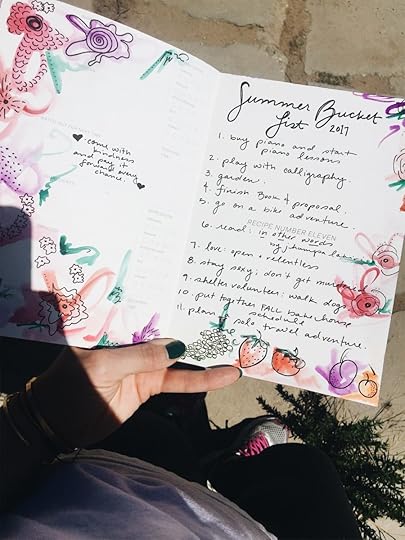 come with
kindness
and pay it
forward every
chance.
Summer Bucket
List 2017
1. buy piano and start
piano lessons
2. play with calligraphy.
3. garden.
4. finish Book & proposal.
5. go on a bike adventure.
RECIPE NUMBER ELEVEN
6. read: in other words
by jhumpa
7. love: open & relentless
8. stay sexy; don't get
9. shelter volunteer: walk dogs
10. put together FALL bakehouse
schedule
11. plan a solo travel adventure.